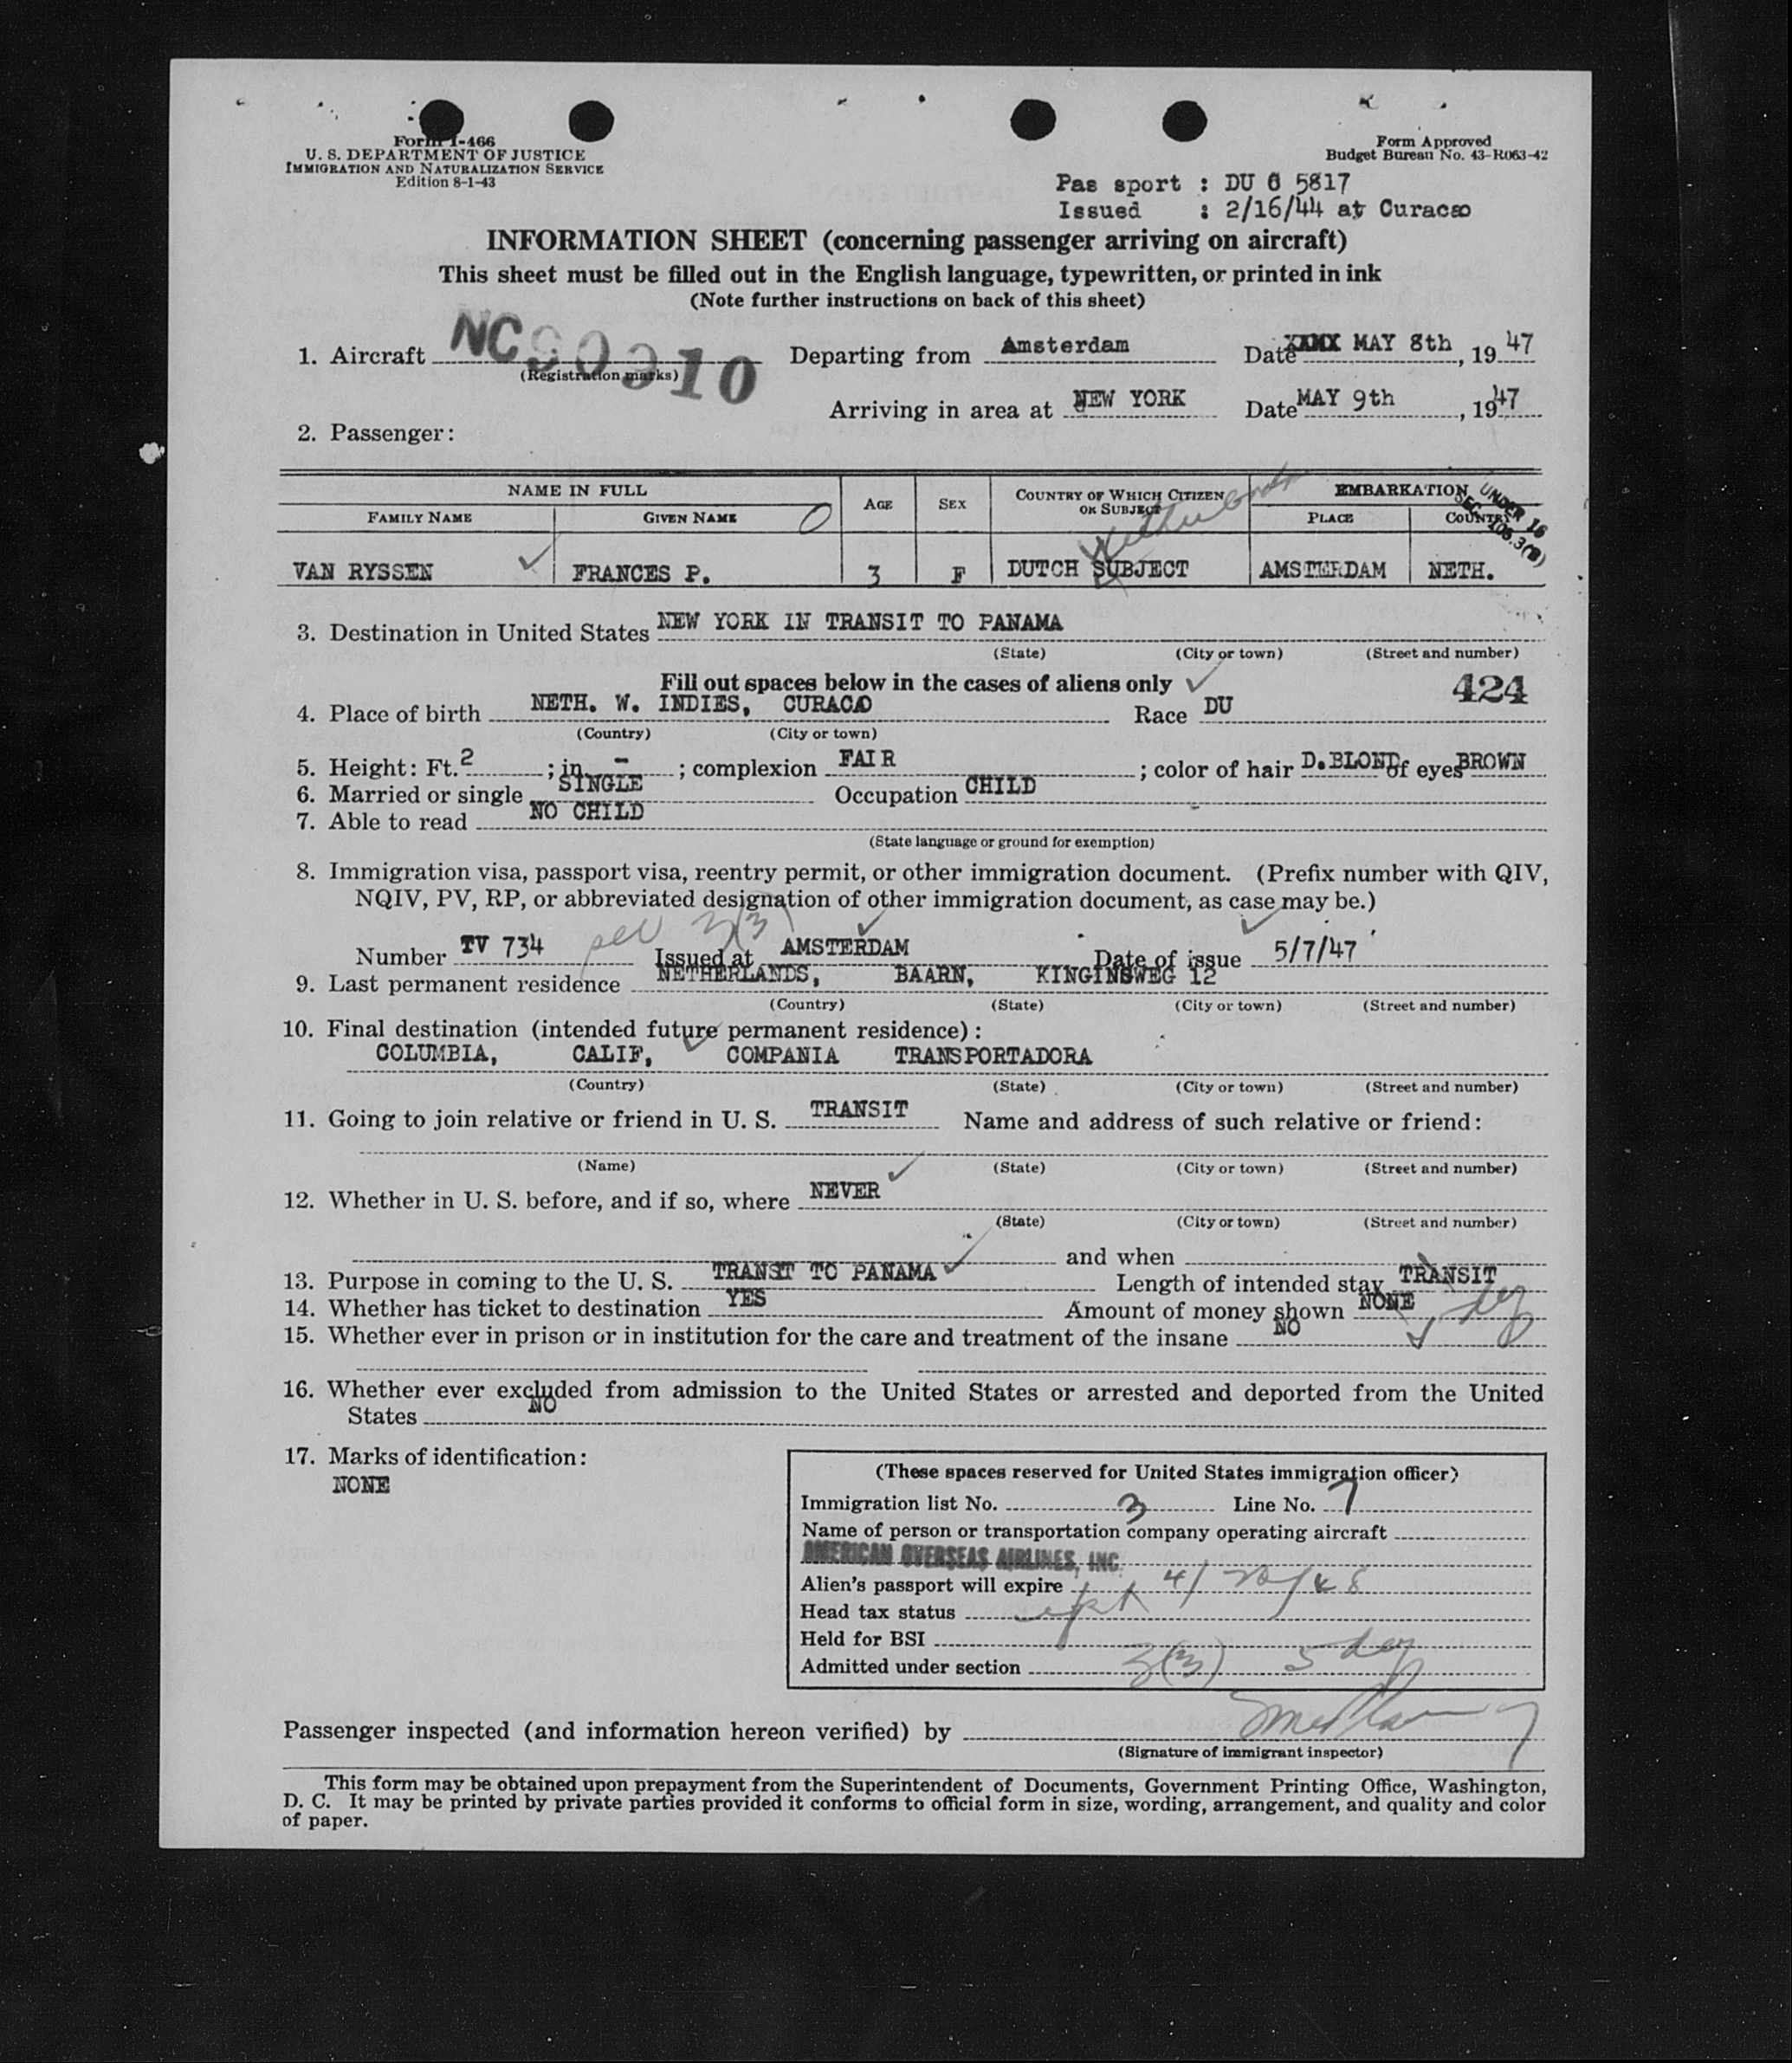 Form I-466
U. S. DEPARTMENT OF JUSTICE
IMMIGRATION AND NATURALIZATION SERVICE
Edition 8-1-43
Form Approved
Budget Bureau No. 43-R063-42
Pas sport : DU 6 5817
Issued : 2/16/44 at Curacao
INFORMATION SHEET (concerning passenger arriving on aircraft)
This sheet must be filled out in the English language, typewritten, or printed in ink
(Note further instructions on back of this sheet)
1. Aircraft NC90910 Departing from Amsterdam Date MAY 8th, 1947
(Registration marks)
Arriving in area at NEW YORK Date MAY 9th, 1947
2. Passenger:
NAME IN FULL AGE SEX COUNTRY OF WHICH CITIZEN OR SUBJECT EMBARKATION
FAMILY NAME GIVEN NAME PLACE COUNTRY
UNDER 16
SEC. 106.3(B)
VAN RYSSEN FRANCES P. 3 F DUTCH SUBJECT AMSTERDAM NETH.
3. Destination in United States NEW YORK IN TRANSIT TO PANAMA
(State) (City or town) (Street and number)
Fill out spaces below in the cases of aliens only 424
4. Place of birth NETH. W. INDIES, CURACAO Race DU
(Country) (City or town)
5. Height: Ft. 2 ; in. - ; complexion FAIR ; color of hair D.BLOND of eyes BROWN
6. Married or single SINGLE Occupation CHILD
7. Able to read NO CHILD
(State language or ground for exemption)
8. Immigration visa, passport visa, reentry permit, or other immigration document. (Prefix number with QIV,
NQIV, PV, RP, or abbreviated designation of other immigration document, as case may be.)
3(3)
Number TV 734 Issued at AMSTERDAM Date of issue 5/7/47
9. Last permanent residence NETHERLANDS, BAARN, KINGINSWEG 12
(Country) (State) (City or town) (Street and number)
10. Final destination (intended future permanent residence):
COLUMBIA, CALIF, COMPANIA TRANSPORTADORA
(Country) (State) (City or town) (Street and number)
11. Going to join relative or friend in U. S. TRANSIT Name and address of such relative or friend:
(Name) (State) (City or town) (Street and number)
12. Whether in U. S. before, and if so, where NEVER
(State) (City or town) (Street and number)
and when
13. Purpose in coming to the U. S. TRANSIT TO PANAMA Length of intended stay TRANSIT
14. Whether has ticket to destination YES Amount of money shown NONE
15. Whether ever in prison or in institution for the care and treatment of the insane NO
16. Whether ever excluded from admission to the United States or arrested and deported from the United
States NO
17. Marks of identification:
NONE
(These spaces reserved for United States immigration officer)
Immigration list No. 3 Line No. 7
Name of person or transportation company operating aircraft
AMERICAN OVERSEAS AIRLINES, INC.
Alien's passport will expire 4/20/48
Head tax status
Held for BSI
Admitted under section 3(3) 5
Passenger inspected (and information hereon verified) by
(Signature of immigrant inspector)
This form may be obtained upon prepayment from the Superintendent of Documents, Government Printing Office, Washington,
D. C. It may be printed by private parties provided it conforms to official form in size, wording, arrangement, and quality and color
of paper.